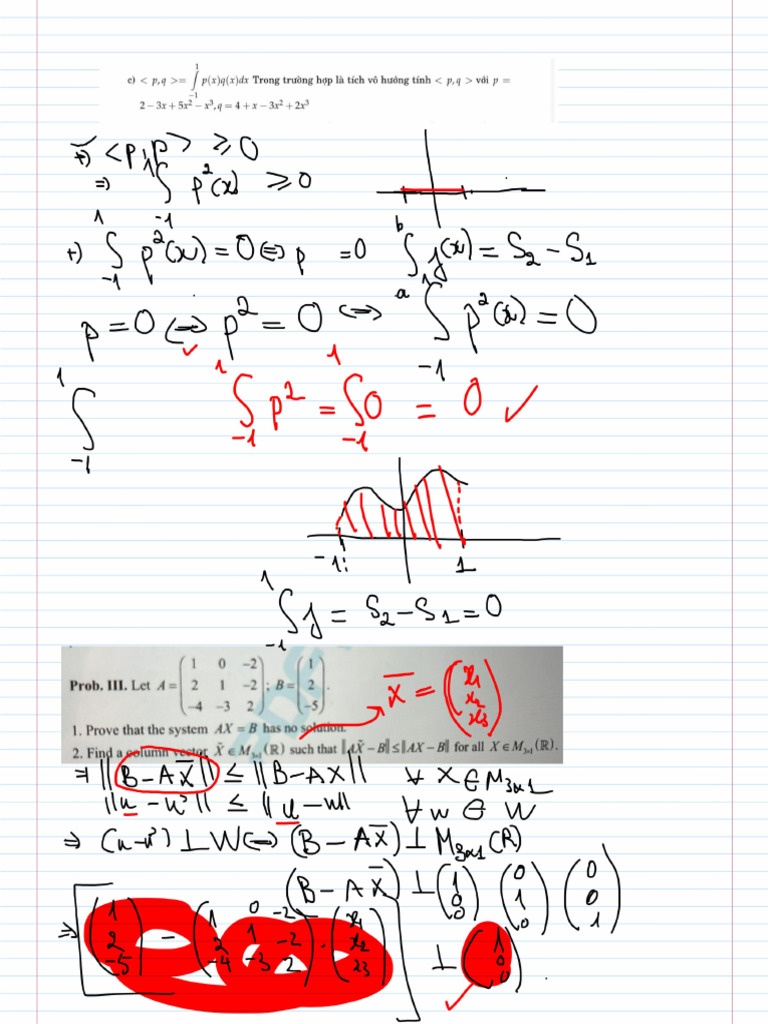 e) < p, q >= ∫₋₁¹ p(x)q(x)dx Trong trường hợp là tích vô hướng tính < p, q > với p =
2 − 3x + 5x² − x³, q = 4 + x − 3x² + 2x³
+) <p,p> ≥ 0
⇒ ∫₋₁¹ p²(x) ≥ 0
+) ∫₋₁¹ p²(x) = 0 ⇔ p = 0 ∫ₐᵇ f(x) = S₂ − S₁
p = 0 ⇔ p² = 0 ⇔ ∫₋₁¹ p²(x) = 0
∫₋₁¹ ∫₋₁¹ p² = ∫₋₁¹ 0 = 0 ✓
-1 1
∫₋₁¹ f = S₂ − S₁ = 0
Prob. III. Let A = (1 0 −2; 2 1 −2; −4 −3 2); B = (1; 2; −5). X̄ = (x₁; x₂; x₃)
1. Prove that the system AX = B has no solution.
2. Find a column vector X̄ ∈ M₃ₓ₁(ℝ) such that ‖AX̄ − B‖ ≤ ‖AX − B‖ for all X ∈ M₃ₓ₁(ℝ).
⇒ ||B − AX̄|| ≤ ||B − AX|| ∀ X ∈ M₃ₓ₁
||u − u'|| ≤ ||u − w|| ∀ w ∈ W
⇒ (u − u') ⊥ W ⇔ (B − AX̄) ⊥ M₃ₓ₁(R)
(B − AX̄) ⊥ (1; 0; 0) (0; 1; 0) (0; 0; 1)
⇒ [(1; 2; −5) − (1 0 −2; 2 1 −2; −4 −3 2) · (x₁; x₂; x3)] ⊥ (1; 0; 0)